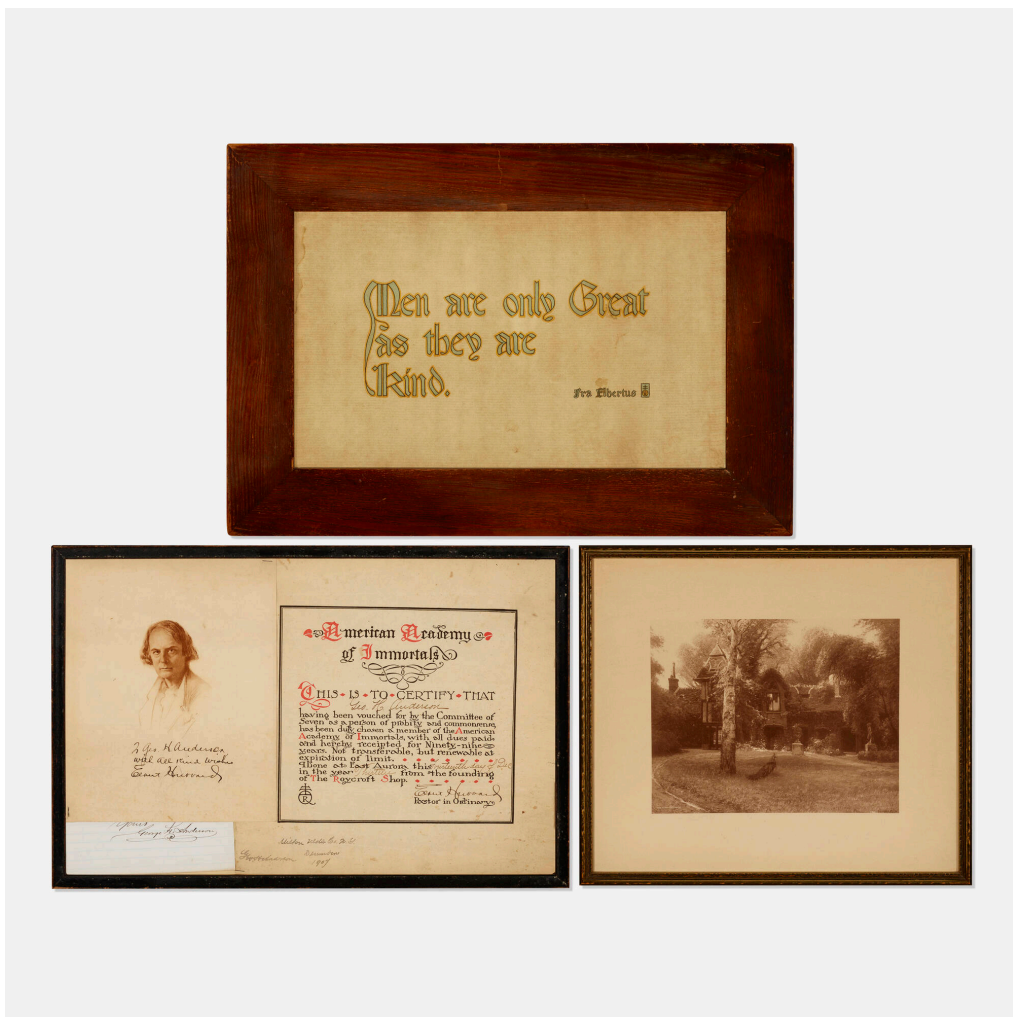 Men are only Great
as they are
Kind.
Fra Elbertus
To Geo. H. Anderson,
with all kind wishes
Elbert Hubbard
Yours
George H. Anderson
American Academy
of Immortals
THIS • IS • TO • CERTIFY • THAT
Geo. H. Anderson
having been vouched for by the Committee of
Seven as a person of probity and commonsense,
has been duly chosen a member of the American
Academy of Immortals, with all dues paid
and hereby receipted for Ninety-nine
years. Not transferable, but renewable at
expiration of limit.
Done at East Aurora this day of
in the year from the founding
of The Roycroft Shop.
Elbert Hubbard
R
Pastor in Ordinary
1909